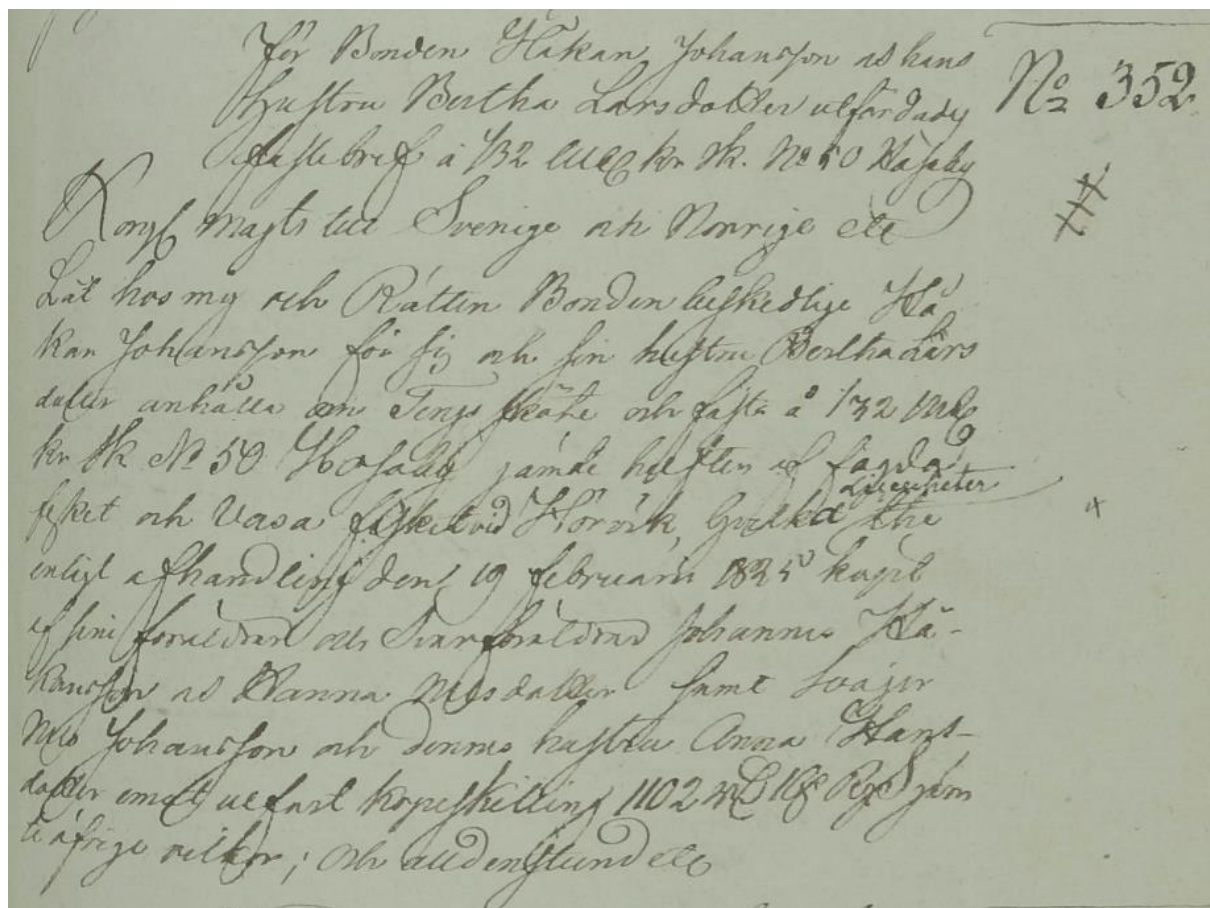 För Bonden Håkan Johansson as hans
Hustru Bertha Larsdotter utfärdady
fastebref å 1/32 kr sk. No 50 Hosaby
No 352
Kongl Majts till Sverige och Norrige etc
Lät hos mig och Rätten Bonden beskedlige Hå
kan Johansson för sig och sin hustru Bertha Lars
dotter anhålla om Tings sköte och fasta å 1/32
kr sk No 50 Hosaby jämte hälften af
fisket och Vasa fisket vid Hörvik, hvilka Lägenheter the
enligt afhandling den 19 februarii 1825 köpt
af sine föräldrar och Svärföräldrar Johannes Hå-
kansson as Hanna Nilsdotter samt Svåger
Nils Johansson och dennes hustru Anna Hans-
dotter emot utfäst köpeskilling 1102 jem
te öfrige vilkor; och alldenstund etc